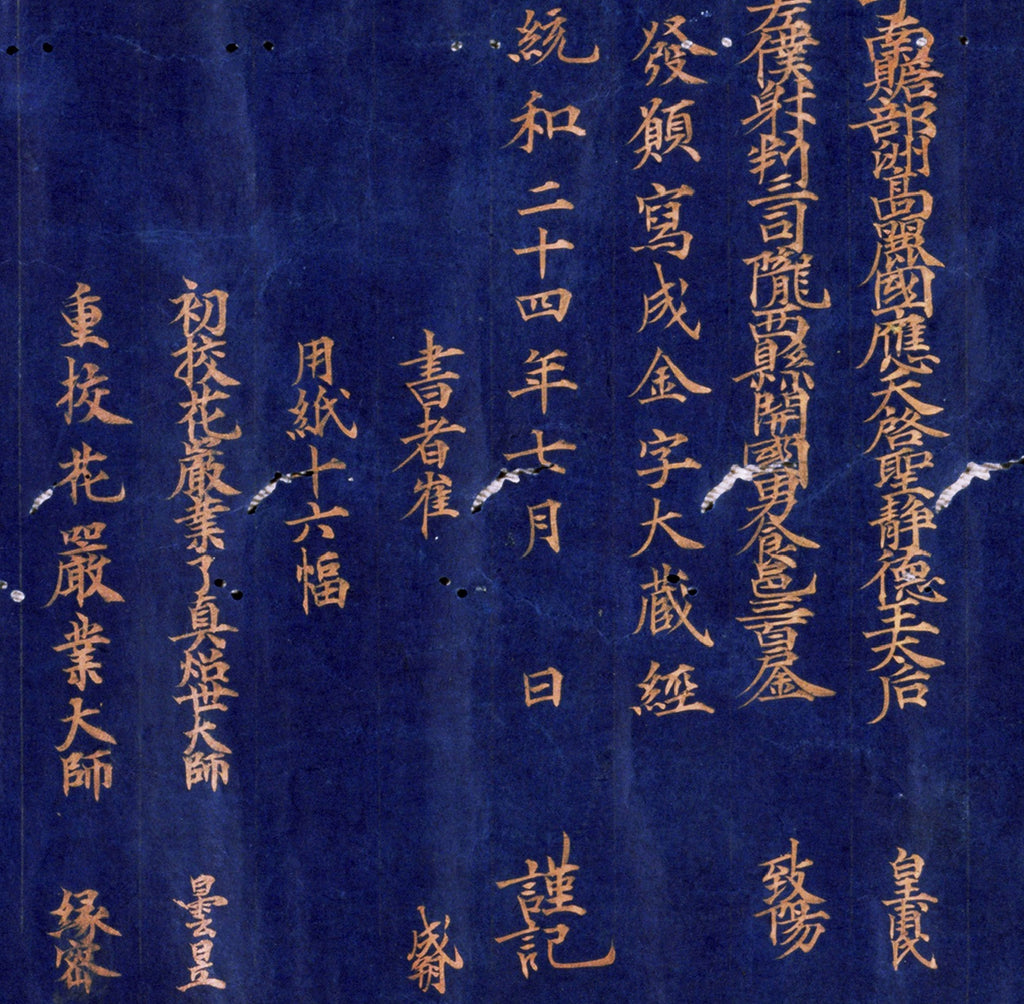 南贍部洲髙麗國應天啓聖静德王太后 皇甫氏
左僕射判三司隴西縣開國男食邑三百戶金 致陽
發願寫成金字大蔵經
統和二十四年七月 日 謹記
書者崔 成朔
用紙十六幅
初挍花嚴業了真炤世大師 曇昱
重挍花嚴業大師 縁密